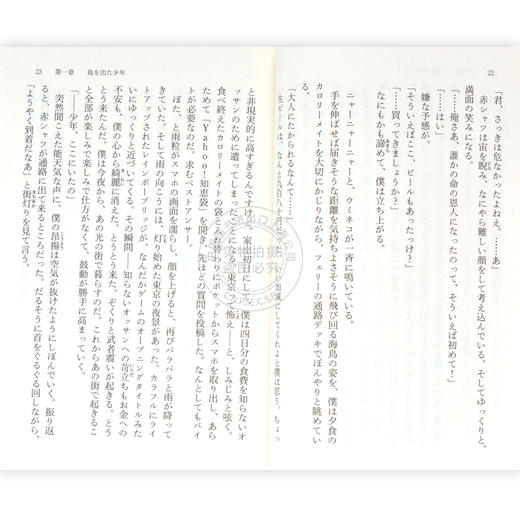 22
「君、さっきは危なかったよねえ。……あ」
赤シャツは宙を睨み、なにやら難しい顔をして考え込んでいる。そしてゆっくりと、
満面の笑みになる。
「……俺さあ、誰かの命の恩人になったのって、そういえば初めて！」
「……はい」
嫌な予感が。
「そういえばここ、ビールもあったっけ？」
「……買ってきましょうか？」
なにもかも諦めて、僕は立ち上がる。
ニャーニャーニャーと、ウミネコが一斉に鳴いている。
手を伸ばせば届きそうな距離を気持ちよさそうに飛び回る海鳥の姿を、僕は夕食の
カロリーメイトを大切にかじりながら、フェリーの通路デッキでぼんやりと眺めてい
「大人にたかられるなんて……」
23 第一章 島を出た少年
と非現実的に高すぎるんですけど
家出初日にし
て、僕は四日分の食費を知らないオ
ッサンのために遣ってしまったことになる。東京って怖え——と、しみじみと呟く。
食べ終えたカロリーメイトの袋と入れ替わりにポケットからスマホを取り出し、あら
ためて「Yahoo！知恵袋」を開き、先ほどの質問を投稿した。なんとしてもバイ
トが必要なのだ。求むベストアンサー。
ぽた、と雨粒がスマホの画面を濡らし、顔を上げると、再びパラパラと雨が降って
きていた。そして雨の向こうには、灯り始めた東京の夜景があった。カラフルにライ
トアップされたレインボーブリッジが、なんだかゲームのオープニングタイトルみた
いにゆっくりと近づいてくる。その瞬間——知らないオッサンへの苛立ちもお金への
不安も、僕の心から綺麗に消えた。とうとう来た。ぞくりと武者震いが起きる。とう
とう来たんだ。僕は今夜から、あの光の街で暮らすのだ。これからあの街で起きるこ
と全部が楽しみで楽しみで仕方がなくて、鼓動が勝手に高まっていく。
「——少年、ここにいたか」
突然聞こえた能天気な声に、僕の昂揚は空気が抜けたようにしぼんでいく。振り返
ると、赤シャツが通路に出て来るところだった。だるそうに首をぐるぐる回しながら、
「ようやく到着だなあ」と街灯りを見て言う。